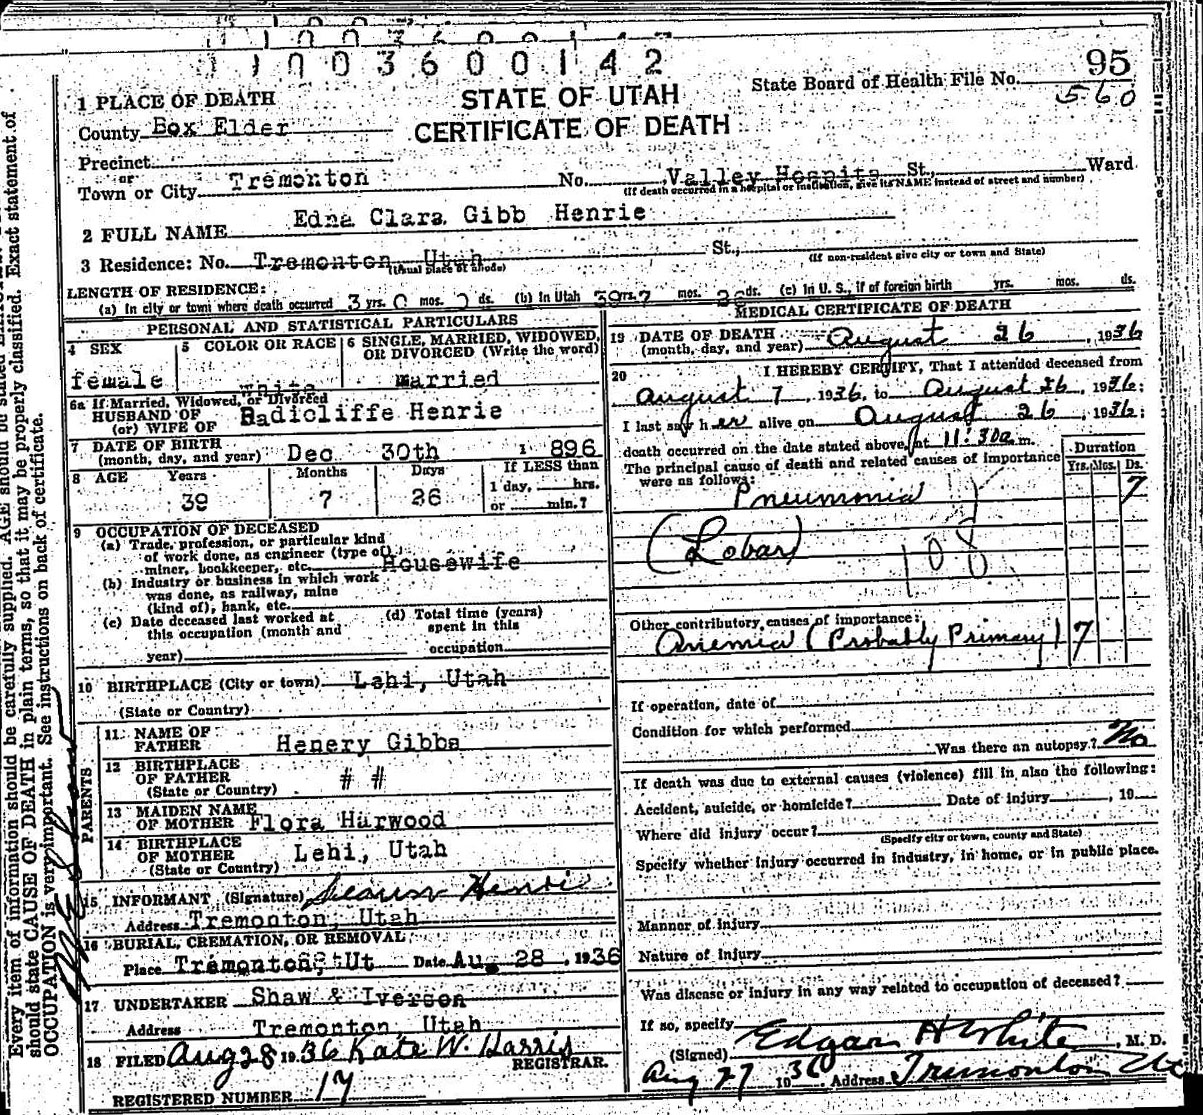 1 1 0 0 3 6 0 0 1 4 2
State Board of Health File No. 95
560
STATE OF UTAH
CERTIFICATE OF DEATH
1 PLACE OF DEATH
County Box Elder
Precinct
or
Town or City Tremonton No. Valley Hospita St., Ward
(If death occurred in a hospital or institution, give its NAME instead of street and number)
2 FULL NAME Edna Clara Gibb Henrie
3 Residence: No. Tremonton, Utah St.,
(Usual place of abode) (If non-resident give city or town and State)
LENGTH OF RESIDENCE:
(a) In city or town where death occurred 3 yrs. 0 mos. 0 ds. (b) In Utah 39 yrs. 7 mos. 26 ds. (c) In U. S., if of foreign birth yrs. mos. ds.
PERSONAL AND STATISTICAL PARTICULARS
4 SEX 5 COLOR OR RACE 6 SINGLE, MARRIED, WIDOWED, OR DIVORCED (Write the word)
female white married
6a If Married, Widowed, or Divorced
HUSBAND OF
(or) WIFE OF Radicliffe Henrie
7 DATE OF BIRTH
(month, day, and year) Dec 30th 1896
8 AGE Years Months Days If LESS than
1 day, hrs.
39 7 26 or min.?
9 OCCUPATION OF DECEASED
(a) Trade, profession, or particular kind
of work done, as engineer (type of),
miner, bookkeeper, etc. Housewife
(b) Industry or business in which work
was done, as railway, mine
(kind of), bank, etc.
(c) Date deceased last worked at (d) Total time (years)
this occupation (month and spent in this
year) occupation
10 BIRTHPLACE (City or town) Lehi, Utah
(State or Country)
PARENTS
11 NAME OF
FATHER Henery Gibbs
12 BIRTHPLACE
OF FATHER # #
(State or Country)
13 MAIDEN NAME
OF MOTHER Flora Harwood
14 BIRTHPLACE
OF MOTHER Lehi, Utah
(State or Country)
15 INFORMANT (Signature) Henrie
Address Tremonton, Utah
16 BURIAL, CREMATION, OR REMOVAL
Place Tremonton, Ut Date Aug 28, 1936
17 UNDERTAKER Shaw & Iverson
Address Tremonton, Utah
18 FILED Aug 28 1936 Kate W. Harris
REGISTRAR.
REGISTERED NUMBER 17
MEDICAL CERTIFICATE OF DEATH
19 DATE OF DEATH
(month, day, and year) August 26, 1936
20 I HEREBY CERTIFY, That I attended deceased from
August 7, 1936, to August 26, 1936;
I last saw her alive on August 26, 1936;
death occurred on the date stated above, at 11:30a m.
The principal cause of death and related causes of importance were as follows: Duration
Yrs. Mos. Ds.
Pneumonia 7
(Lobar) 108
Other contributory causes of importance:
Anemia (Probably Primary) 7
If operation, date of
Condition for which performed
Was there an autopsy? No
If death was due to external causes (violence) fill in also the following:
Accident, suicide, or homicide? Date of injury , 19
Where did injury occur?
(Specify city or town, county and State)
Specify whether injury occurred in industry, in home, or in public place.
Manner of injury
Nature of injury
Was disease or injury in any way related to occupation of deceased?
If so, specify
(Signed) Edgar H White, M. D.
Aug 27 1936 Address Tremonton Ut
Every item of information should be carefully supplied. AGE should be stated
should state CAUSE OF DEATH in plain terms, so that it may be properly classified. Exact statement of
OCCUPATION is very important. See instructions on back of certificate.